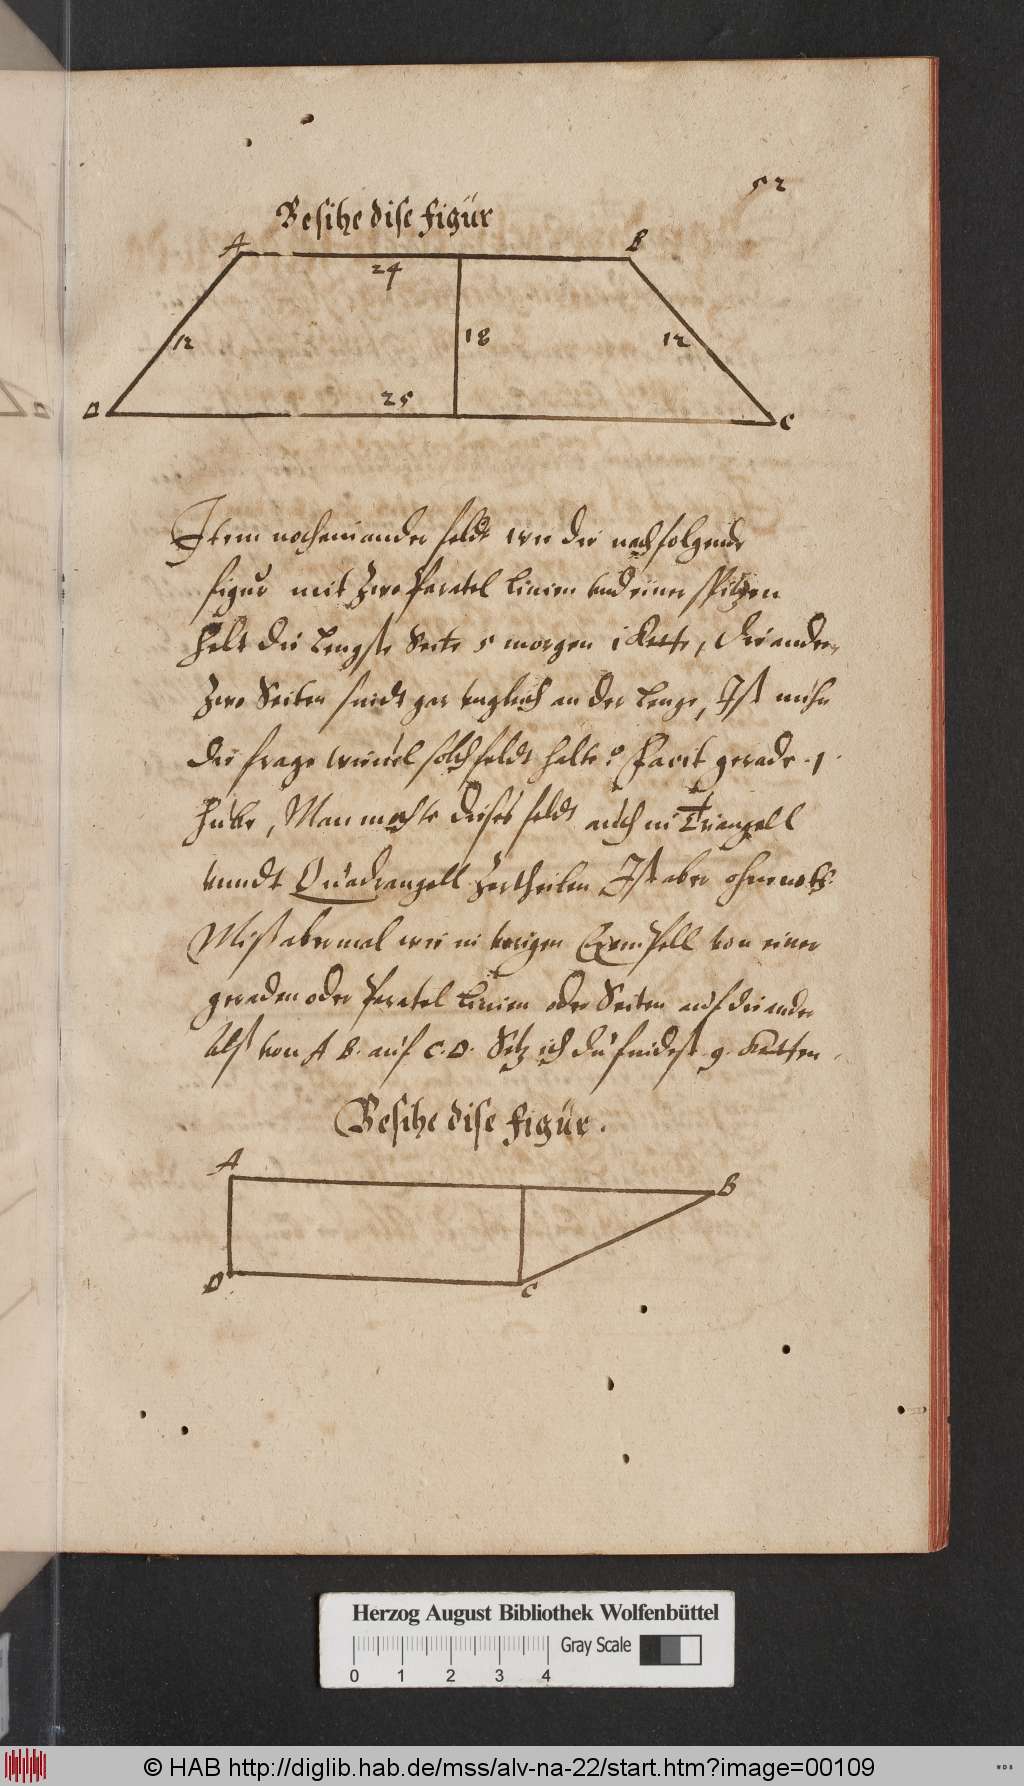 52
Besihe dise figür
A B
24
12 18 12
25
D C
Item noch ein ander feldt wie die nachfolgende
figur mit zwo Paralel Linien vnd einer spitzen
helt die lengste Seite 5 morgen i Kette, die andern
zwo Seiten sindt gar vngleich an der lenge, Ist nuhn
die frage wieuiel solch feldt halte? Facit gerade 1
hube, Man mochte dieses feldt auch in Triangell
vnndt Quadrangell zertheilen Ist aber ohne
Miß abermal wie in vorigen Exempell von einer
geraden oder Paralel Linien oder Seiten auf die ander
Alß von A B. auf C. D. Setz ich du findest 9. Ketten
Besihe dise figür.
A B
D C
Herzog August Bibliothek Wolfenbüttel
Gray Scale
0 1 2 3 4
© HAB http://diglib.hab.de/mss/alv-na-22/start.htm?image=00109